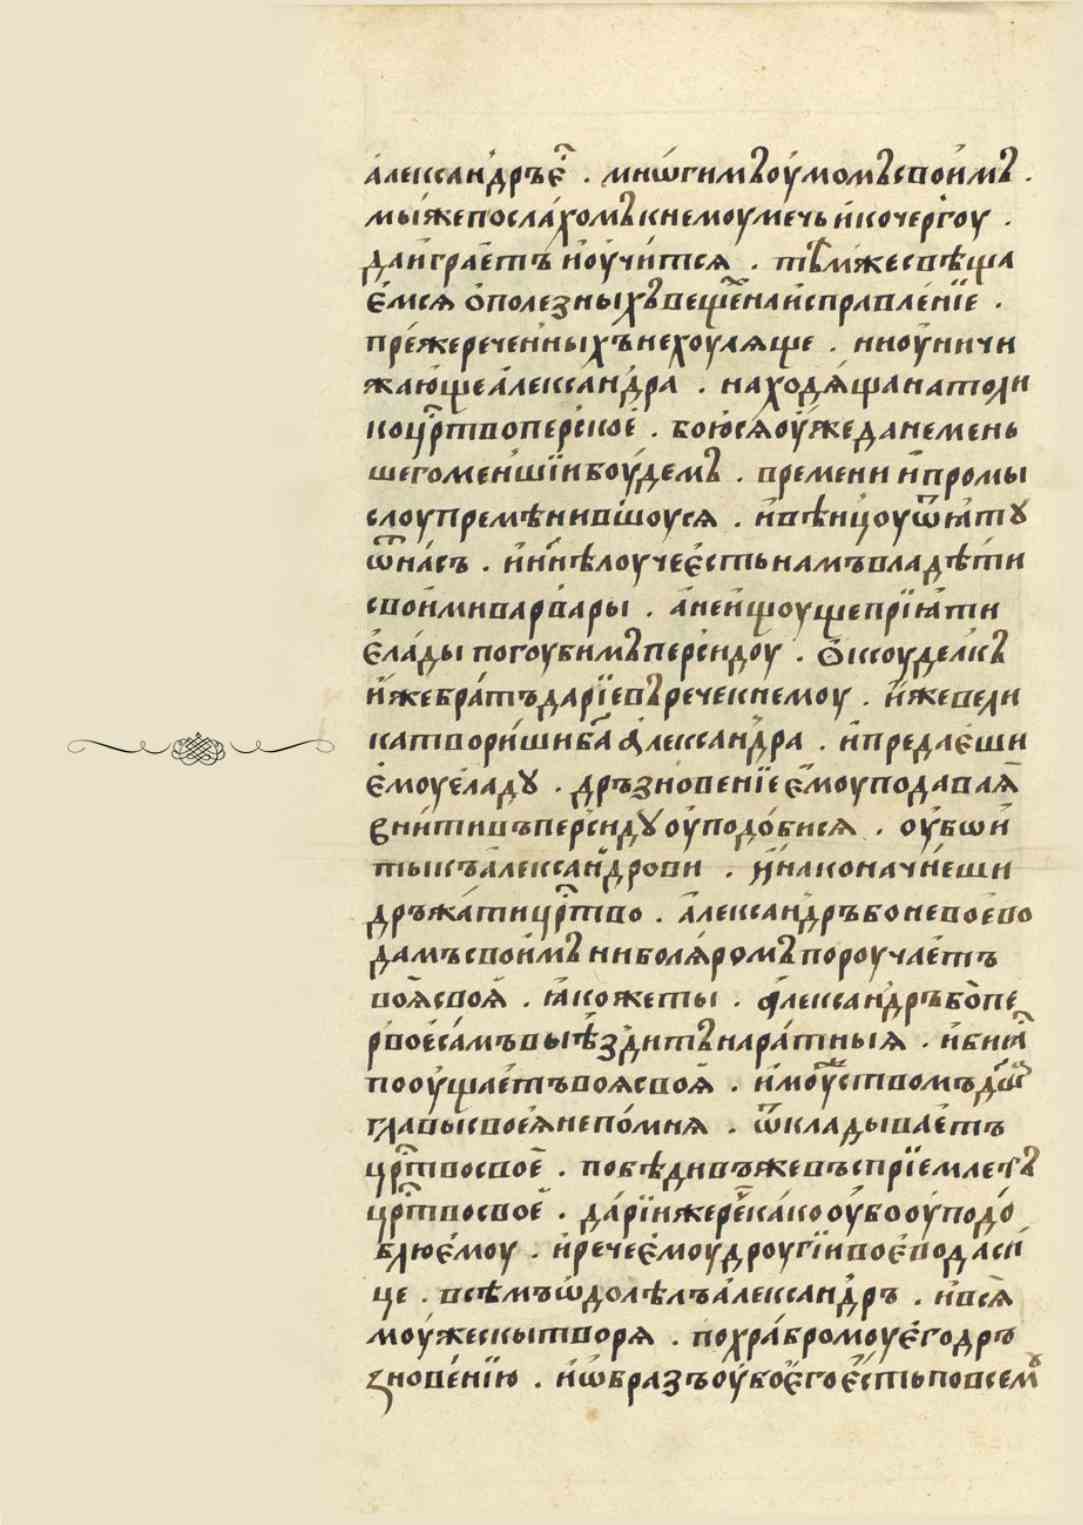 а҆леѯан́дръ є҆с҃ . мно́гимъ оу҆момъ свои҆мъ .
мы́ же посла́хомъ к немоу ме́чь и҆ кочергоу .
да и҆грае҆тъ и҆ оу҆чи́тся . тѣм́же свѣща
е҆мся ѻ҆ полезныхъ веще́ на и҆справле́нїе .
пре́жереченныхъ не хоуляще . ни оу҆ничи
жаю҆ще а҆леѯан́дра . находя́ща на толи
ко цр҃тво перско́е . бою́ся оу҆же да не мень
шего мен́шїи боу́демъ . времени и҆ промы
слоу премѣнившоуся . и҆ вѣнцоу ѿя́тꙋ
ѿ на́съ . и҆ нн҃ѣ лоуче е҆сть намъ владѣ́ти
свои́ми варвары . а҆ не и҆щоуще прїя́ти
е҆ла́ды погоубимъ персидоу . ѻ҆ксоуделкъ
и҆же бра́тъ дарїевъ рече к немоу . и҆же вели
ка твори́ши ба҃ а҆леѯан́дра . и҆ предае҆ши
е҆моу е҆ладꙋ . дръзновенїе е҆моу подавая҆
внити въ персидꙋ оу҆подо́бися . оу҆бо и҆
ты къ а҆леѯан́дрови . и҆ и҆нако начне́ши
дръжа́ти цр҃тво . а҆леѯандръ бо не воево
дамъ свои́мъ ни боля́ромъ пороучае҆тъ
воя҆ своя҆ . я҆ко же ты . а҆леѯан́дръ бо пе
рвое са́мъ выѣздитъ на ра́тныя . и҆ бия
поѹщае҆тъ воя своя҆ . и҆ моу҆ствомъ до
главы своея не по́мня . ѿкладывае҆тъ
цр҃тво свое҆ . побѣдивъ же въспрїемлетъ
цр҃тво свое҆ . да́рїи же рече́ ка́ко оу҆бо оу҆подо́
блю е҆моу . и҆ рече е҆моу дроугїи воевода си́
це . всѣмъ ѡ҆долѣлъ а҆леѯан́дръ . и҆ вся҆
моу́жескы творя . по хра́бромоу е҆го дръ
зновенїю . и҆ ѻ҆бразъ оу҆бо е҆го е҆сть по всемꙋ